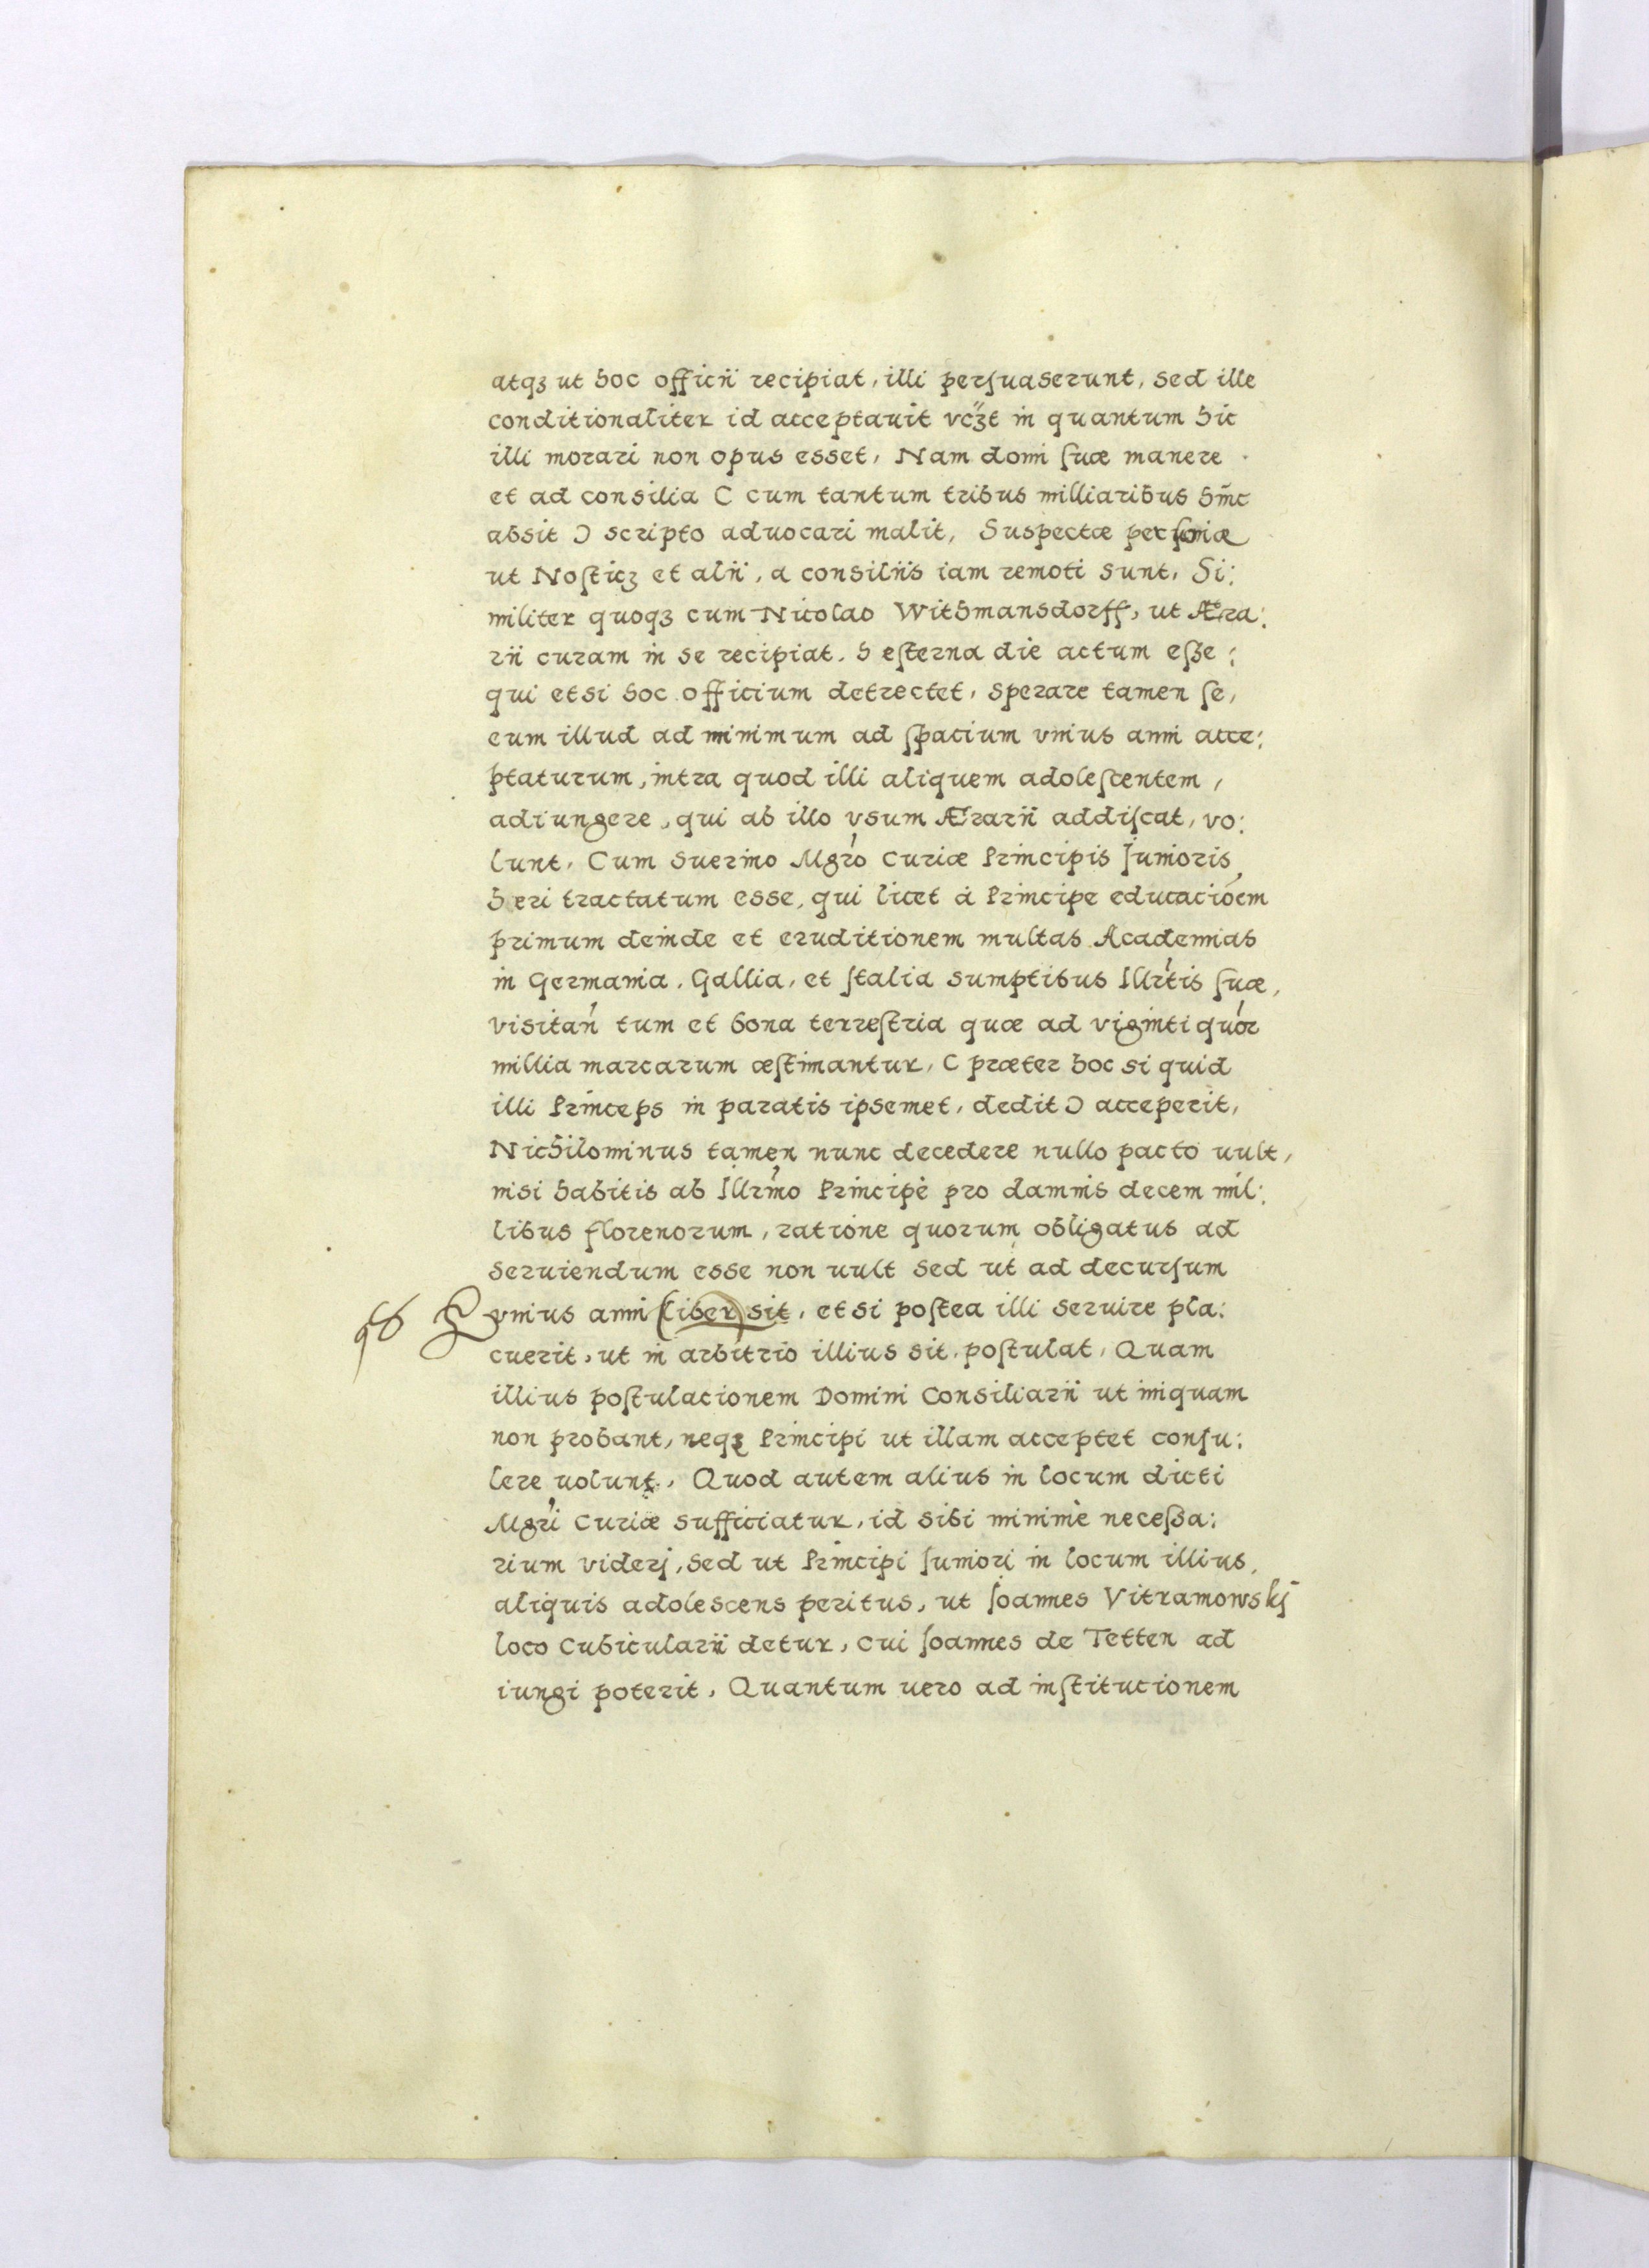 atqꝫ ut hoc officii recipiat, illi persuaserunt, sed ille
conditionaliter id acceptauit vcꝫt in quantum hic
illi morari non opus esset, Nam domi suæ manere
et ad consilia ( cum tantum tribus milliaribus hinc
absit ) scripto aduocari malit, Suspectæ personæ
ut Nosticz et alii, a consiliis iam remoti sunt, Si:
militer quoqꝫ cum Nicolao Withmansdorff, ut Æra:
rii curam in se recipiat. hesterna die actum esse:
qui etsi hoc officium detrectet, sperare tamen se,
eum illud ad minimum ad spacium vnius anni acce:
ptaturum, intra quod illi aliquem adolescentem,
adiungere, qui ab illo vsum Ærarii addiscat, vo:
lunt. Cum Suerino Mgro Curiæ Principis Junioris
heri tractatum esse, qui licet à Principe educacioem
primum deinde et eruditionem multas Academias
in Germania, Gallia, et Italia sumptibus Illrtis suæ,
visitan tum et bona terrestria quæ ad viginti quor
millia marcarum æstimantur, ( præter hoc si quid
illi Princeps in paratis ipsemet, dedit ) acceperit,
Nichilominus tamen nunc decedere nullo pacto uult,
nisi habitis ab Illrmo Principe pro damnis decem mil:
libus florenorum, ratione quorum obligatus ad
seruiendum esse non uult sed ut ad decursum
vnius anni liber sit, etsi postea illi seruire pla:
cuerit, ut in arbitrio illius sit, postulat, Quam
illius postulacionem Domini Consiliarii ut iniquam
non probant, neqꝫ Principi ut illam acceptet consu:
lere uolunt, Quod autem alius in locum dicti
Mgri Curiæ sufficiatur, id sibi minimè necessa:
rium viderj, sed ut Principi Juniori in locum illius,
aliquis adolescens peritus, ut Joannes Vitramowskj
loco Cubicularii detur, cui Joannes de Tetten ad
iungi poterit, Quantum uero ad institucionem